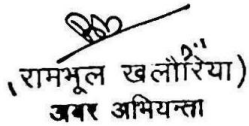 (रामभूल खलौरिया)
अवर अभियन्ता